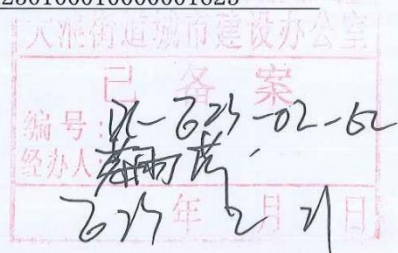 2301000100000001623
街道城市建设办公室
已备案
编号: -2025-02-62
经办人
2025年2月21日